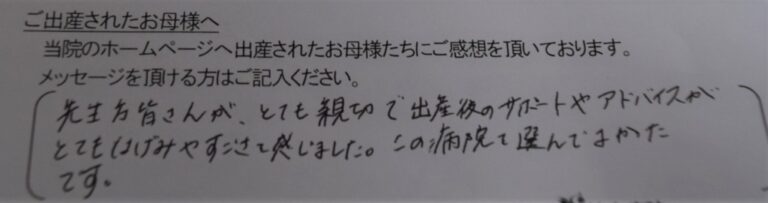 ご出産されたお母様へ
当院のホームページへ出産されたお母様たちにご感想を頂いております。
メッセージを頂ける方はご記入ください。
先生方皆さんが、とても親切で出産後のサポートやアドバイスが
とてもはげみやすごさを感じました。この病院を選んでよかった
です。